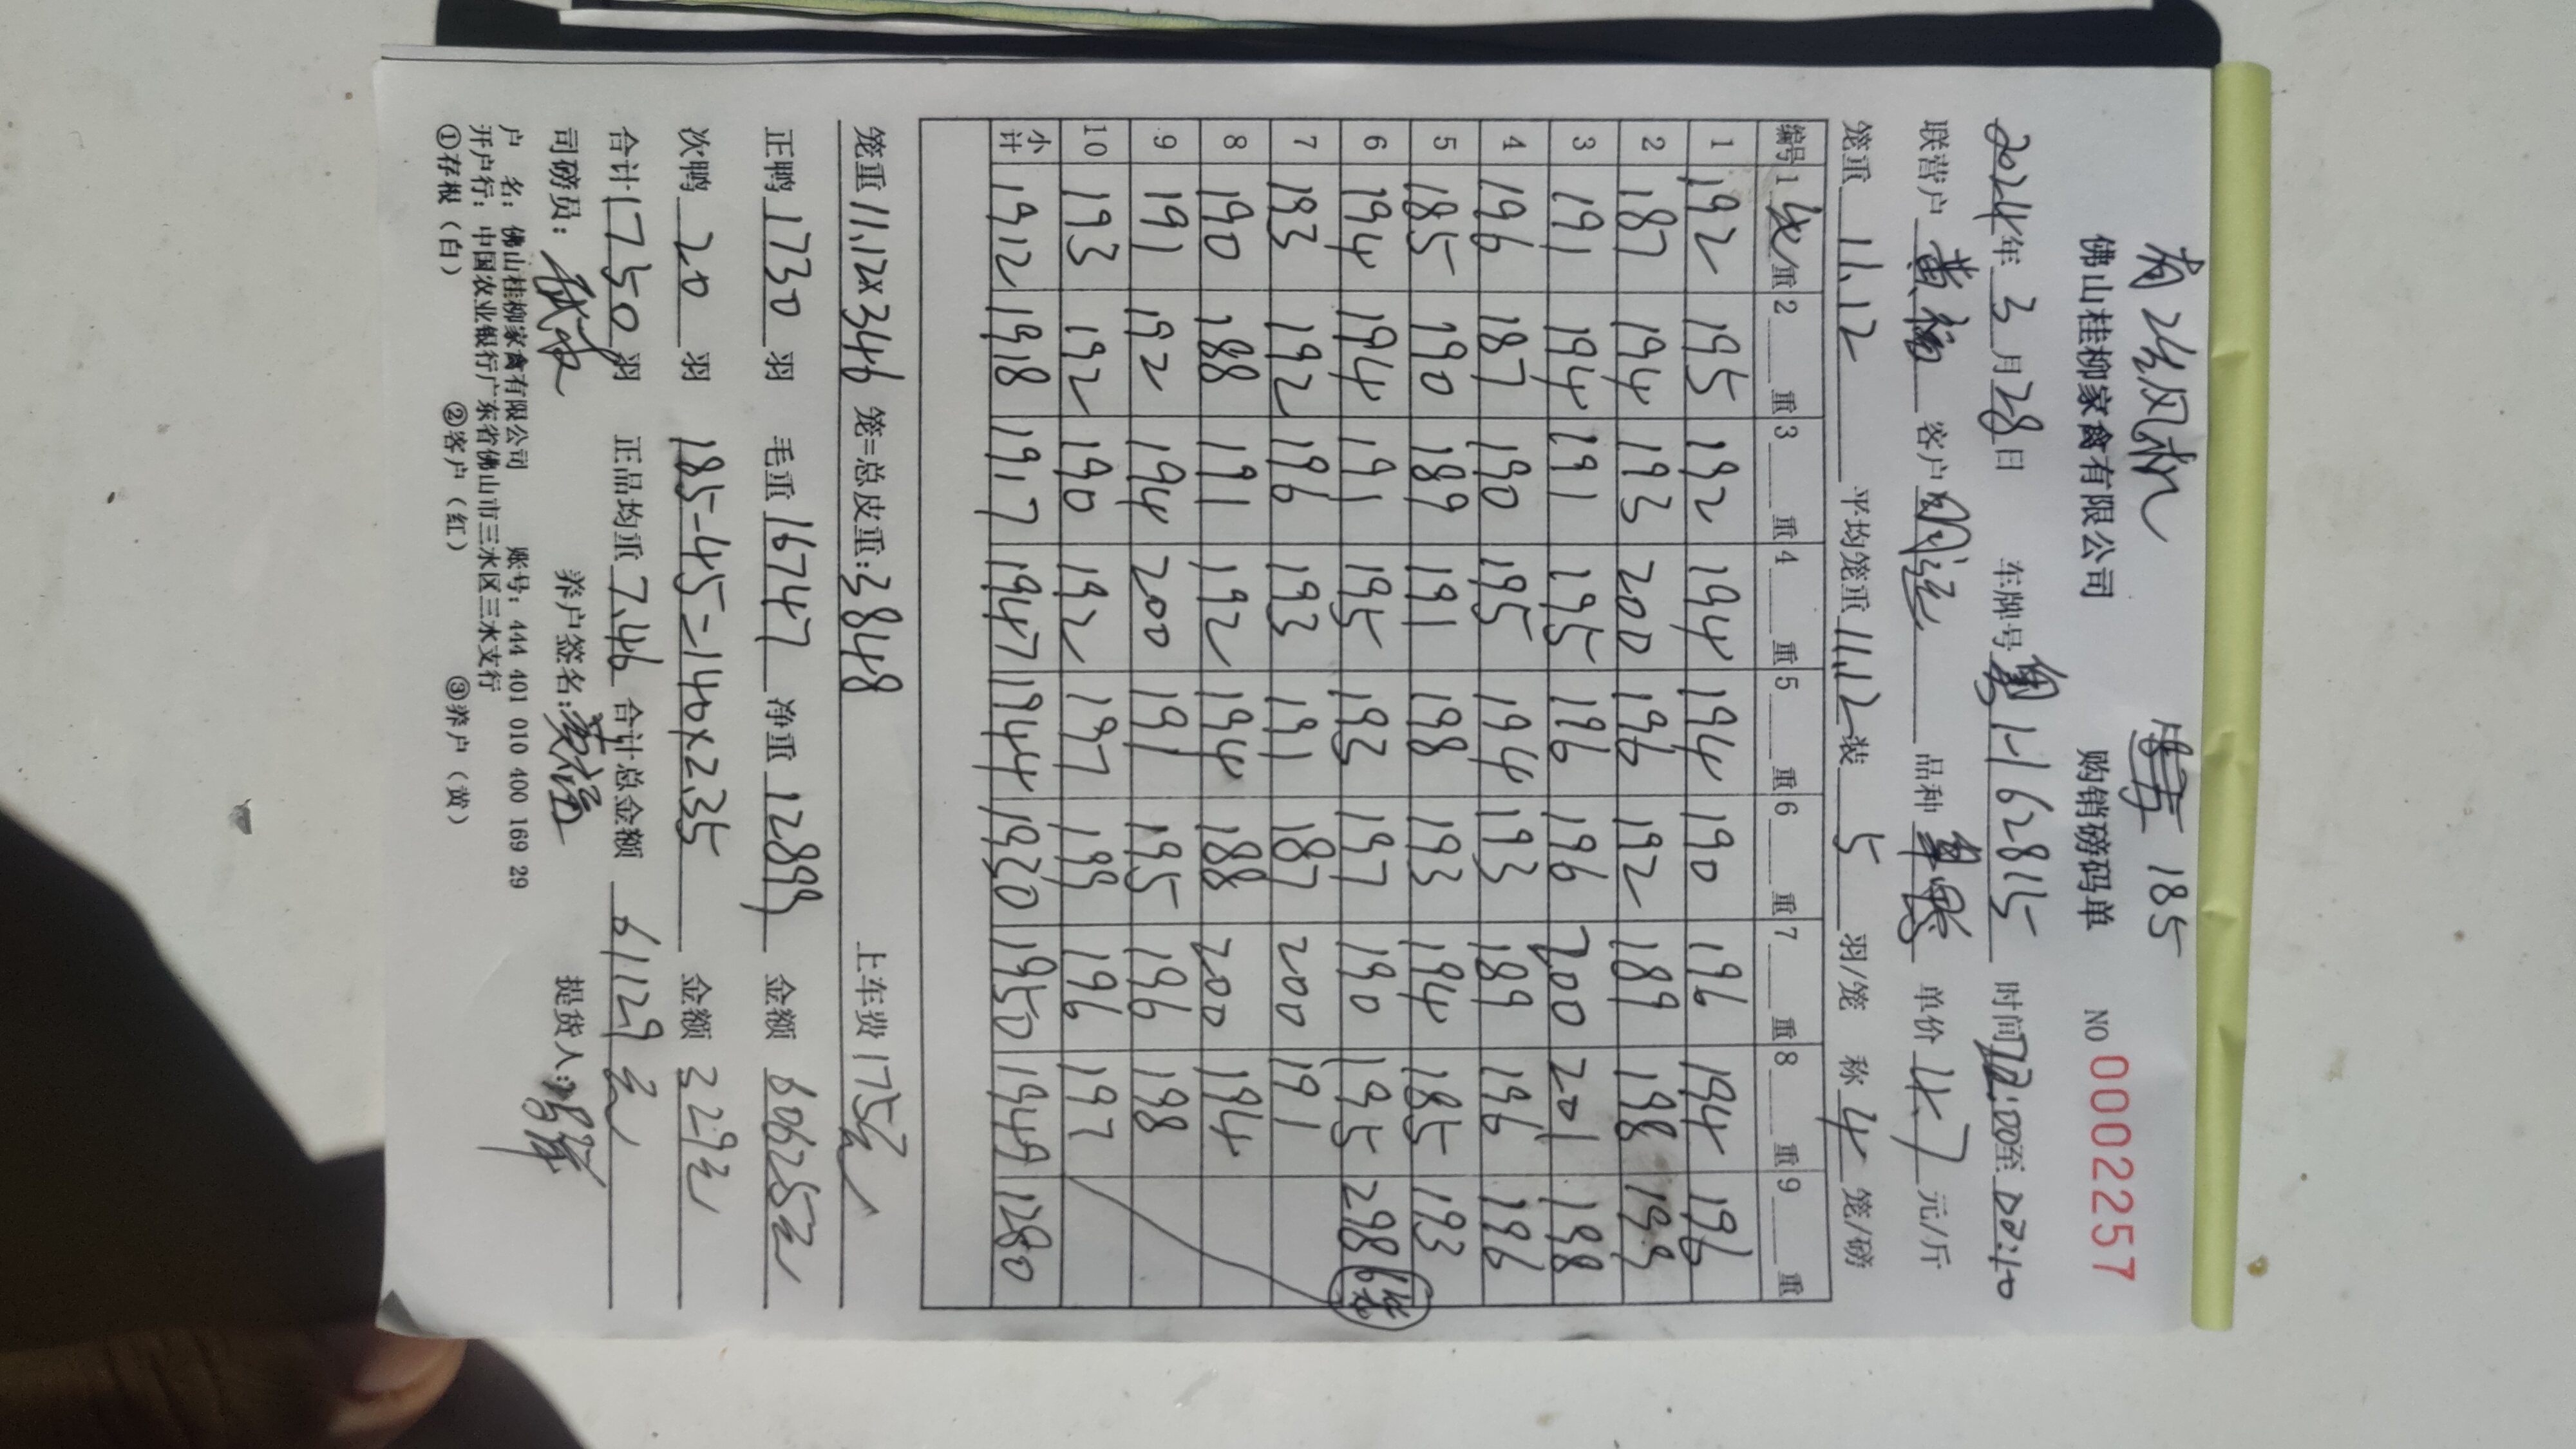 185
佛山桂柳家禽有限公司 购销磅码单 NO 0002257
2024年3月28日 车牌号 1-162815 时间 22:00至22:10
联营户 黄 客户 品种 单价 4.7 元/斤
笼重 11.12 平均笼重 11.12 装 5 羽/笼 称 4 笼/磅
编号 1 重 2 重 3 重 4 重 5 重 6 重 7 重 8 重 9 重
1 192 195 192 194 194 190 196 194 196
2 187 194 193 200 196 192 189 198 199
3 191 194 191 195 196 196 200 201 198
4 196 187 190 195 194 193 189 196 196
5 185 190 189 191 198 193 194 185 193
6 194 194 191 195 193 197 190 195 298
7 193 192 196 193 191 187 200 191
8 190 188 191 192 194 188 200 194
9 191 192 194 200 191 195 196 198
10 193 192 190 192 197 199 196 197
小计 1912 1918 1917 1947 1944 1930 1950 1949 1280
笼重 11.12×346 笼=总皮重:3848 上车费 175元
正鸭 1730 羽 毛重 16747 净重 12899 金额 60625元
次鸭 20 羽 185-45=140×2.35 金额 329元
合计 1750 羽 正品均重 7.46 合计总金额 61129元
司磅员: 养户签名: 提货人:
户 名:佛山桂柳家禽有限公司 账号:444 401 010 400 169 29
开户行:中国农业银行广东省佛山市三水区三水支行
①存根(白) ②客户(红) ③养户(黄)